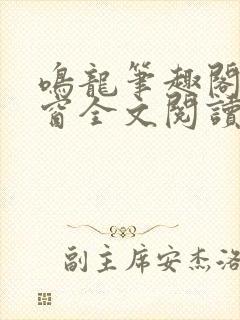 鳴龍筆趣閣
窗全文閱讀
副主席安杰洛